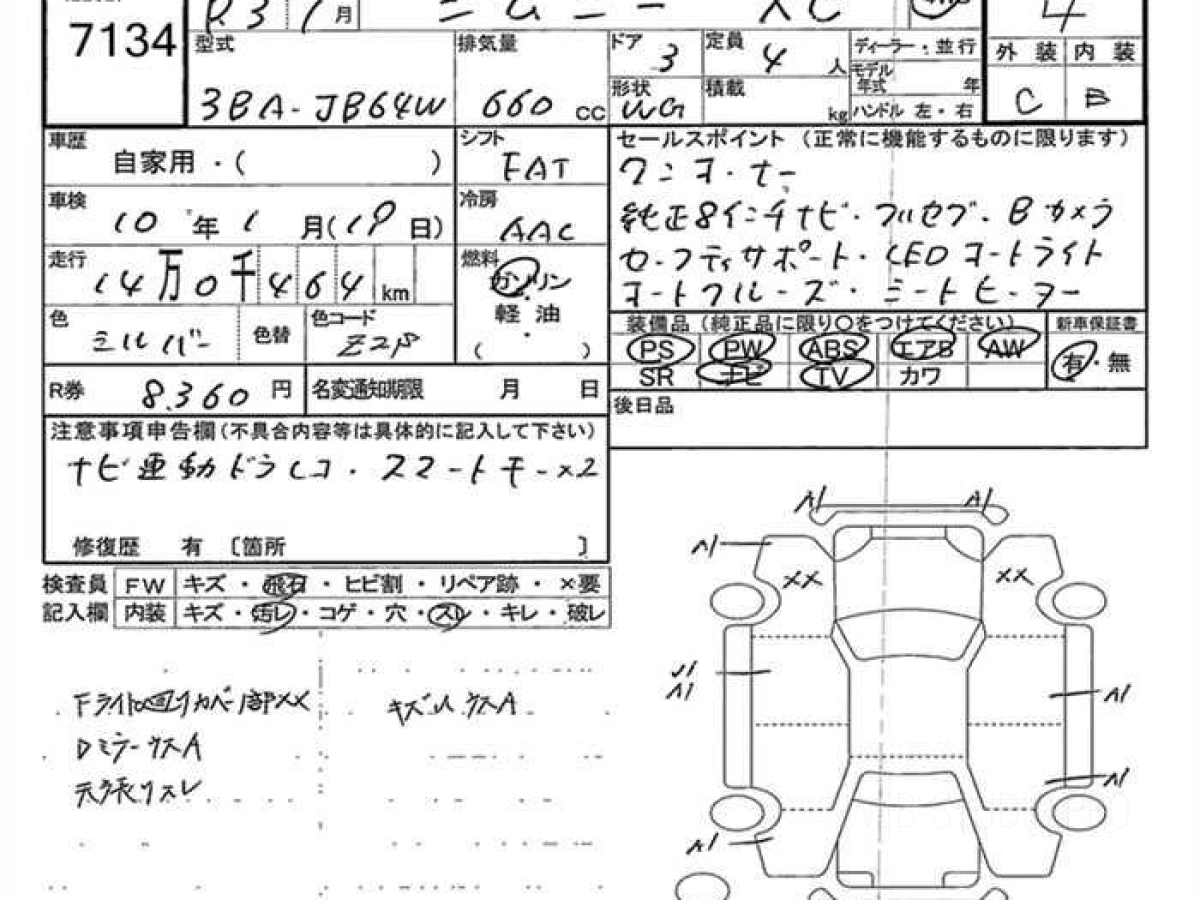 7134
R3 1月
ジムニー XC
4
型式 3BA-JB64W
排気量 660 cc
ドア 3
定員 4 人
ディーラー・並行
モデル年式 年
形状 WG
積載 kg
ハンドル 左・右
外装 内装
C B
車歴 自家用・( )
シフト FAT
車検 10年1月(19日)
冷房 AAC
走行 14万0千464km
燃料 ガソリン・軽油・( )
色 シルバー 色替 色コード Z2S
R券 8,360円 名変通知期限 月 日
セールスポイント (正常に機能するものに限ります)
ワンオーナー
純正8インチナビ・フルセグ・Bカメラ
セーフティサポート・LEDオートライト
オートクルーズ・シートヒーター
装備品 (純正品に限り○をつけてください) 新車保証書
PS PW ABS エアB AW 有・無
SR ナビ TV カワ
後日品
注意事項申告欄(不具合内容等は具体的に記入して下さい)
ナビ連動ドラレコ・スマートキーx2
修復歴 有 〔箇所 〕
検査員 FW キズ・飛石・ヒビ割・リペア跡・×要
記入欄 内装 キズ・汚レ・コゲ・穴・スレ・キレ・破レ
Fライト回リカバー部XX キズ小ウスA
DミラーウスA
天張リスレ
A1 A1
A1
XX XX
U1
A1
A1
A1
A1